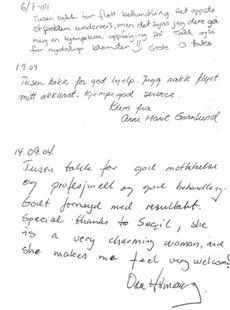 6/7-04
Tusen takk for flott behandling. Det oppsto
et problem underveis, men det syns jeg dere ga
meg en kjempebra oppfølging på. Takk også
for nydelige blomster!! Grete
1.9.04
Tusen takk for god hjelp.
mitt akkurat. Kjempegod service.
Klem fra
Anne Marit Granlund
14.09.04.
Tusen takk for god mottakelse
og profesjonell og god behandling.
Godt fornøyd med resultatet.
Special thanks to Seçil, she
is a very charming woman, and
she makes me feel very welcome!